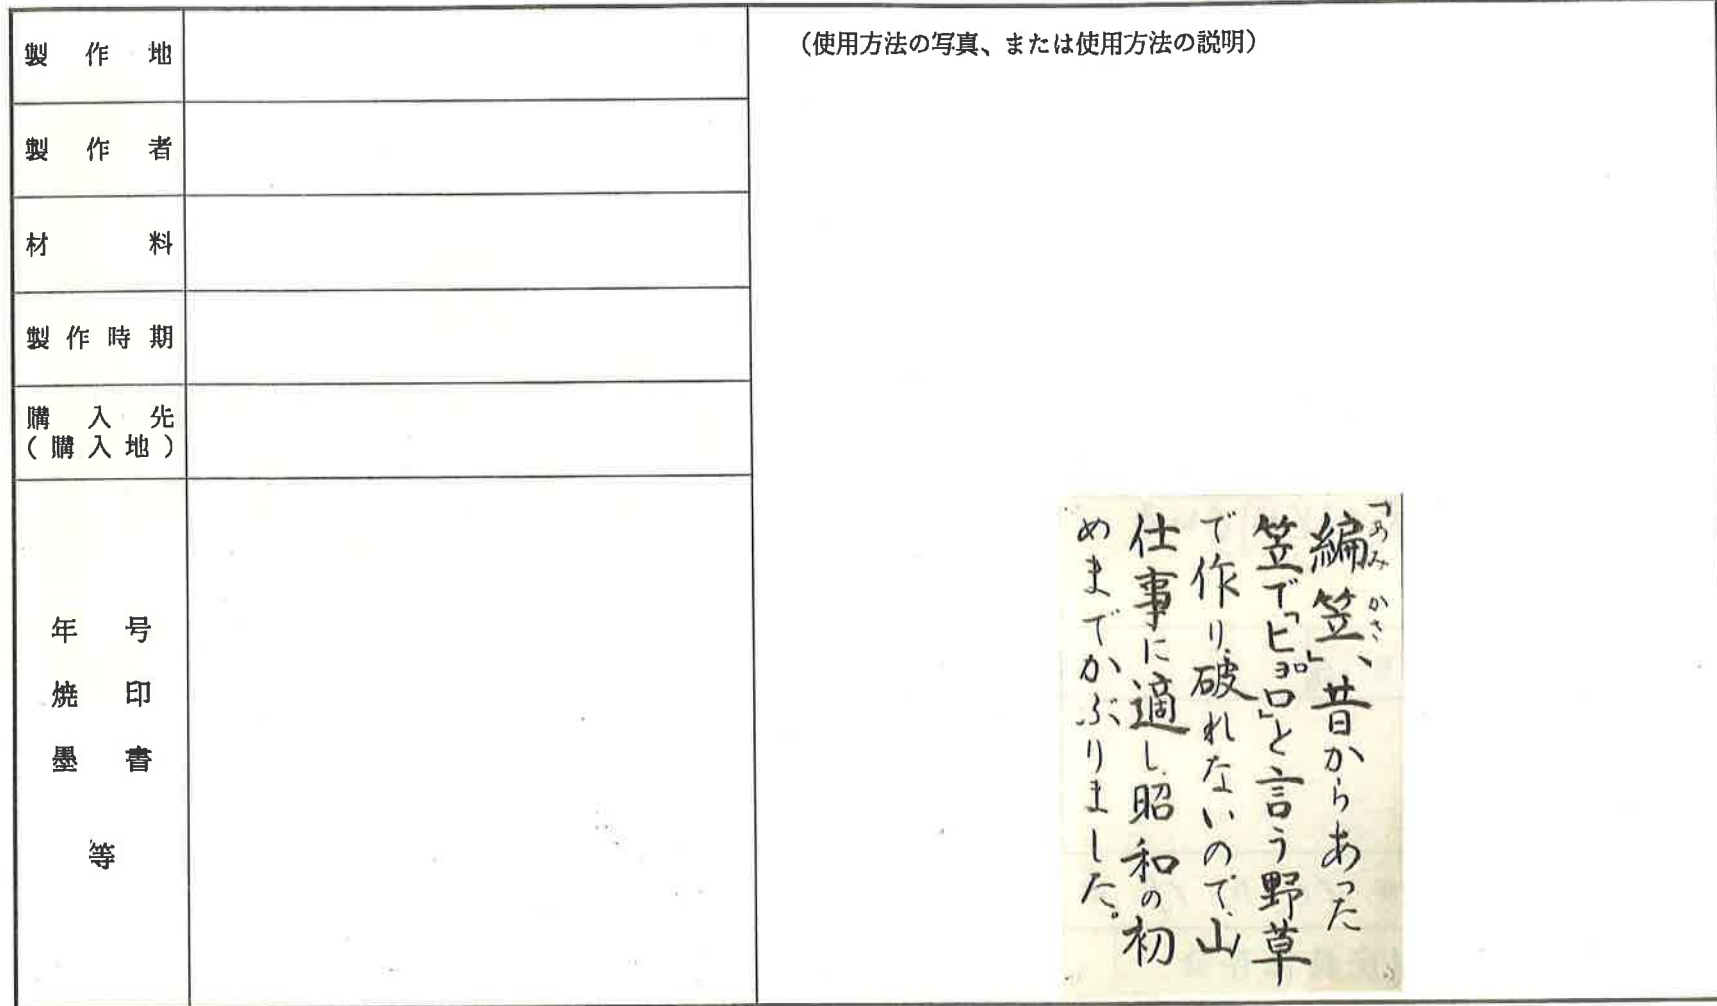 製作地
製作者
材料
製作時期
購入先
(購入地)
年号
焼印
墨書
等
(使用方法の写真、または使用方法の説明)
「編笠」、昔からあった
あみかさ
笠で「ヒョロ」と言う野草
で作り、破れないので、山
仕事に適し、昭和の初
めまでかぶりました。